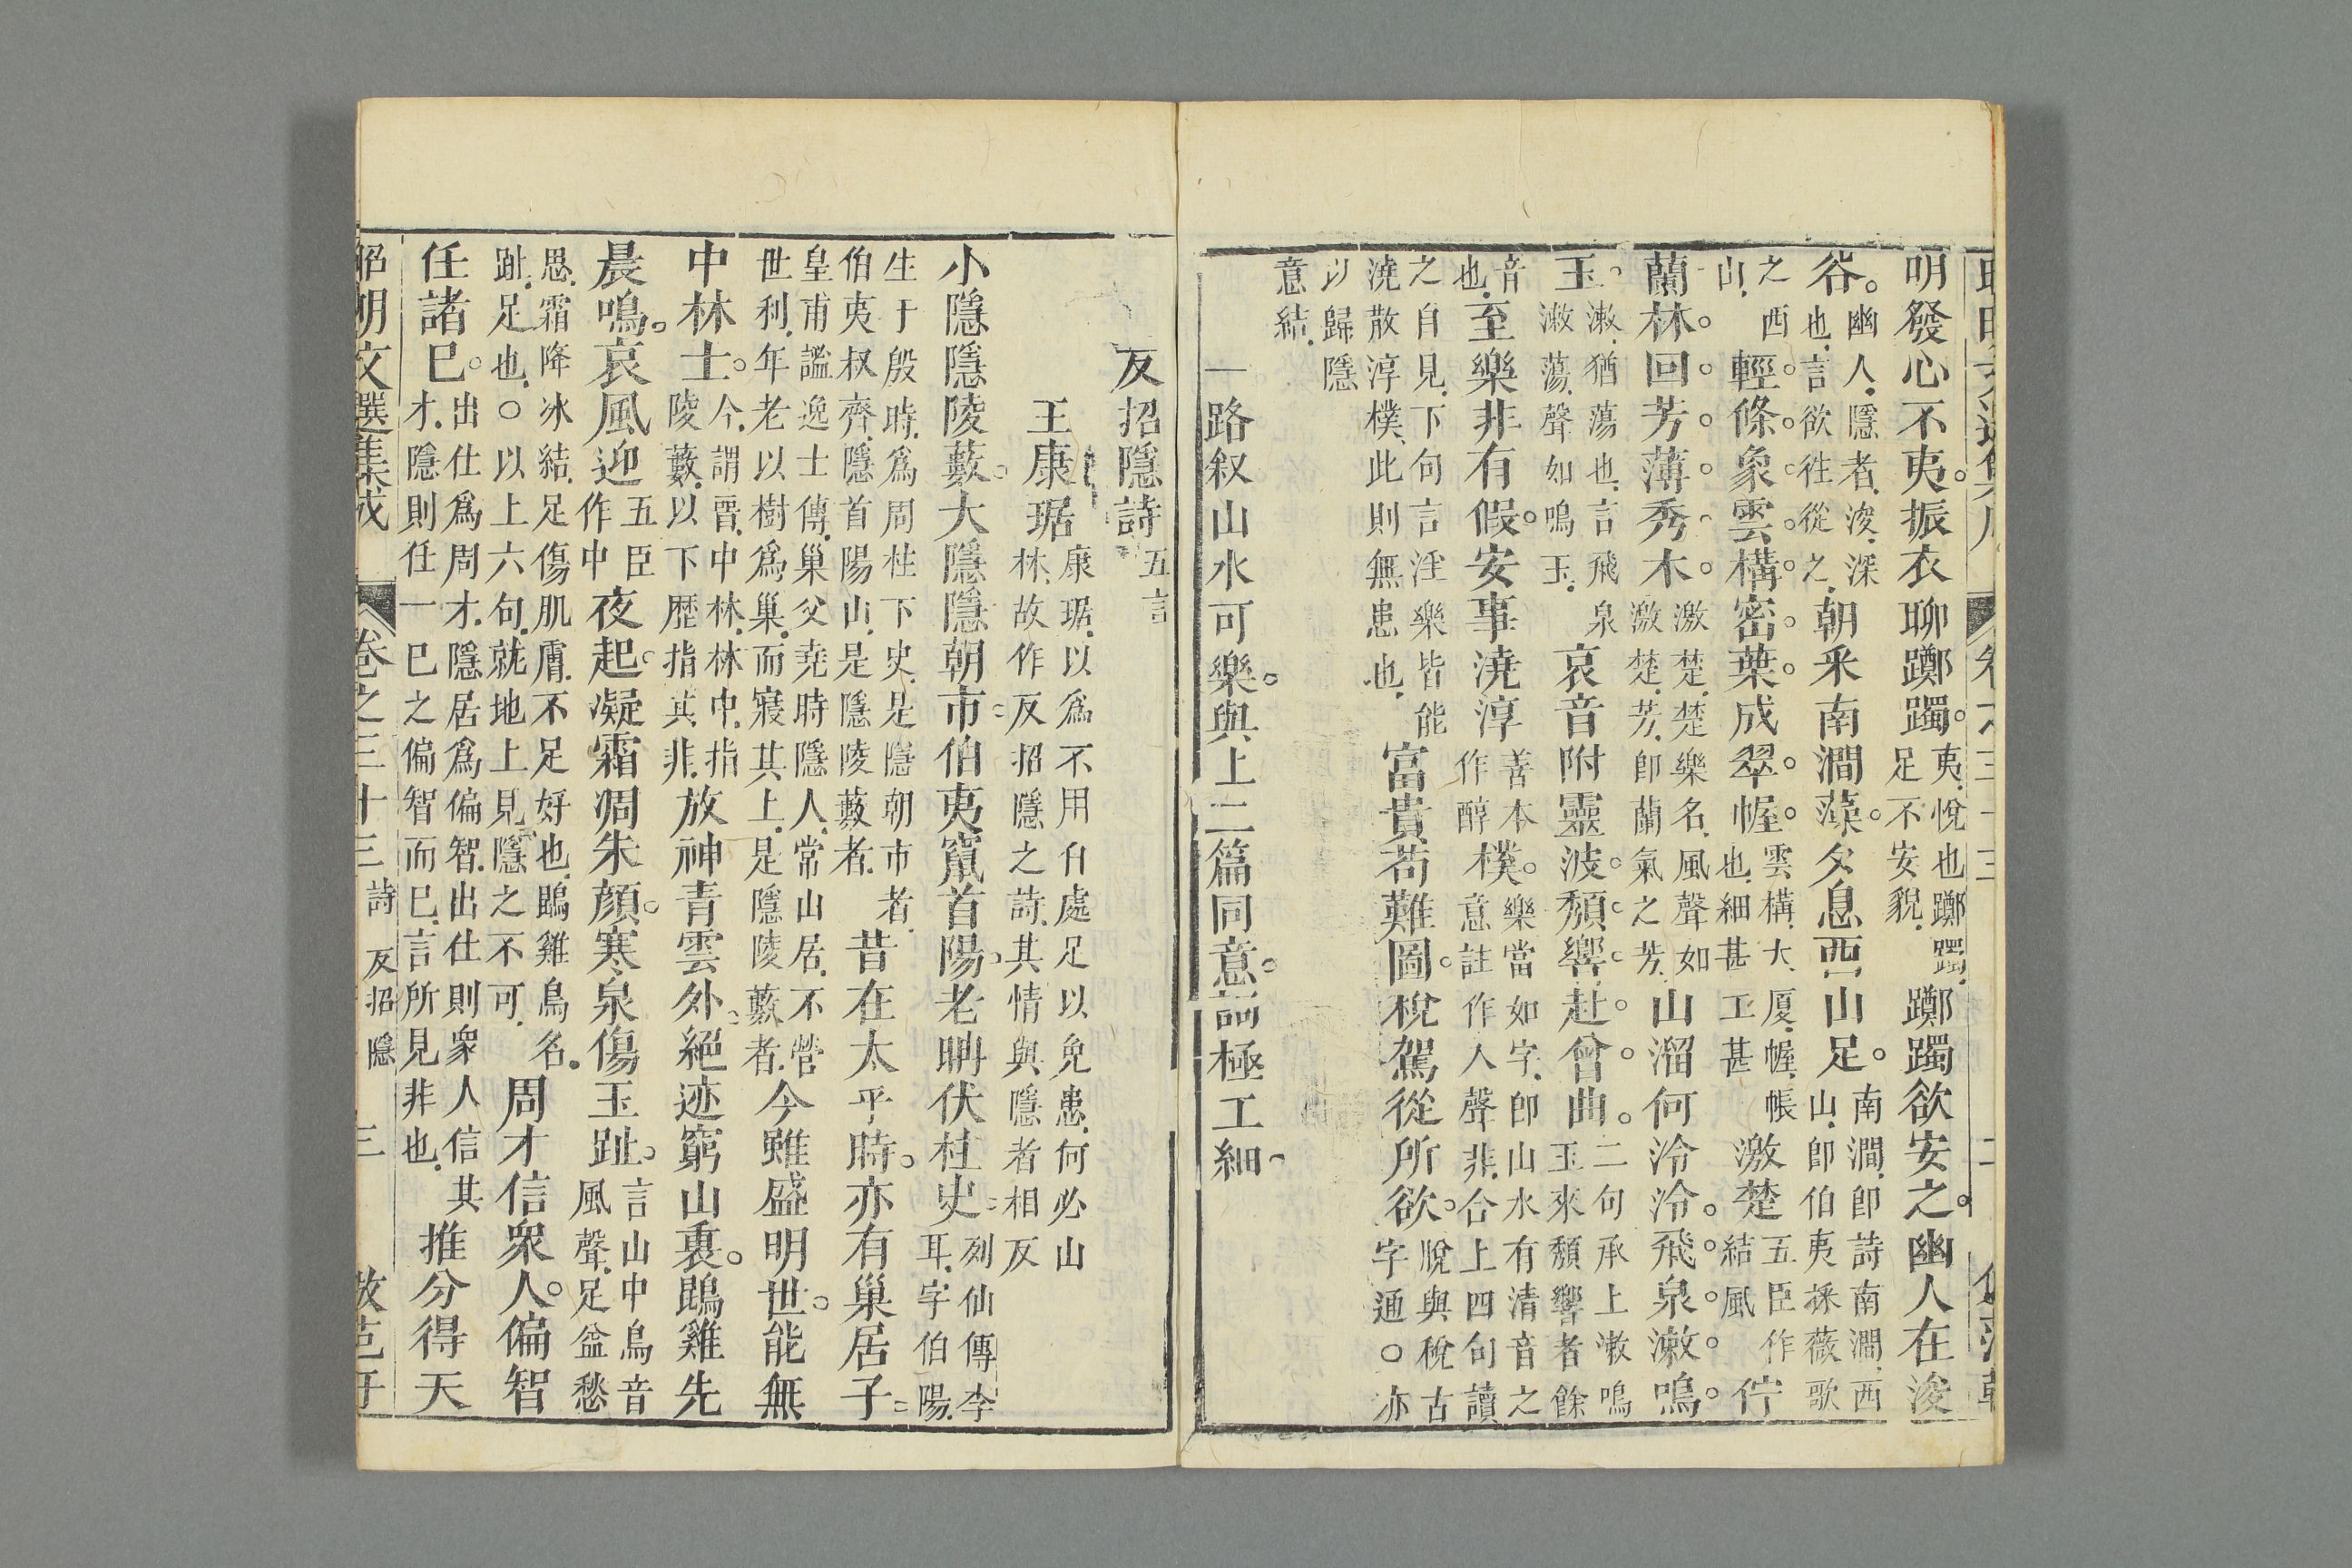 明發心不夷。振衣聊躑躅。夷、悅也躑躅、足不安貌、躑躅欲安之。幽人在浚
谷。幽人、隱者、浚、深也、言欲往從之、朝采南澗藻。夕息西山足。南澗、即詩南澗、西山、即伯夷採薇歌
之西山、輕條象雲構。密葉成翠幄。雲構、大厦、幄、帳也、細甚工甚激楚五臣作結風佇
蘭林。回芳薄秀木。激楚、楚樂名、風聲如激楚、芳、即蘭氣之芳、山溜何泠泠。飛泉漱鳴
玉。漱、猶蕩也、言飛泉漱蕩、聲如鳴玉、哀音附靈波。頹響赴曾曲。二句承上漱鳴玉來頹響者餘
音也、至樂非有假。安事澆淳善本作醇樸。樂當如字、即山水有清音之意註作人聲非、合上四句讀
之自見、下句言淫樂皆能澆散淳樸、此則無患也、富貴苟難圖。稅駕從所欲。脫與稅古字通。○亦
以歸隱意結、
一路叙山水可樂。與上二篇同意。詞極工細。
反招隱詩五言
王康琚康琚、以爲不用什處足以免患、何必山林、故作反招隱之詩、其情與隱者相反
小隱隱陵藪。大隱隱朝市。伯夷竄首陽。老聃伏柱史。列仙傳李耳、字伯陽、
生于殷時、爲周柱下史、是隱朝市者、伯夷叔齊、隱首陽山、是隱陵藪者、昔在太平時。亦有巢居子。
皇甫謐逸士傳、巢父堯時隱人、常山居、不營世利、年老以樹爲巢、而寢其上、是隱陵藪者、今雖盛明世。能無
中林士。今、謂晋、中林、林中、指陵藪、以下歷指其非、放神青雲外。絕迹窮山裏。鵾雞先
晨鳴。哀風迎五臣作中夜起。凝霜凋朱顏。寒泉傷玉趾。言山中鳥音風聲、足益愁
思、霜降冰結、足傷肌膚、不足好也、鵾雞鳥名。趾、足也、○以上六句、就地上見隱之不可、周才信衆人。偏智
任諸已。出仕爲周才、隱居爲偏智、出仕則衆人信其才、隱則任一已之偏智而已、言所見非也、推分得天
昭明文選集成 卷之三十三 詩 反招隱 三